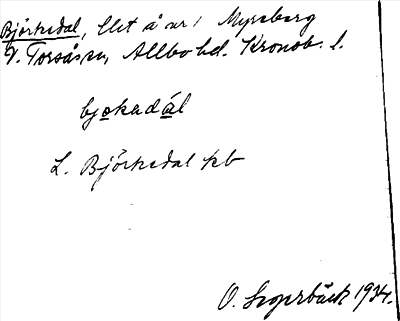 Björkedal, lht å nr 1 Myreberg
V. Torsås sn, Allbo hd. Kronob. l.
bjo̲kadá̲l
L. Björkedal kb
O. 1934.